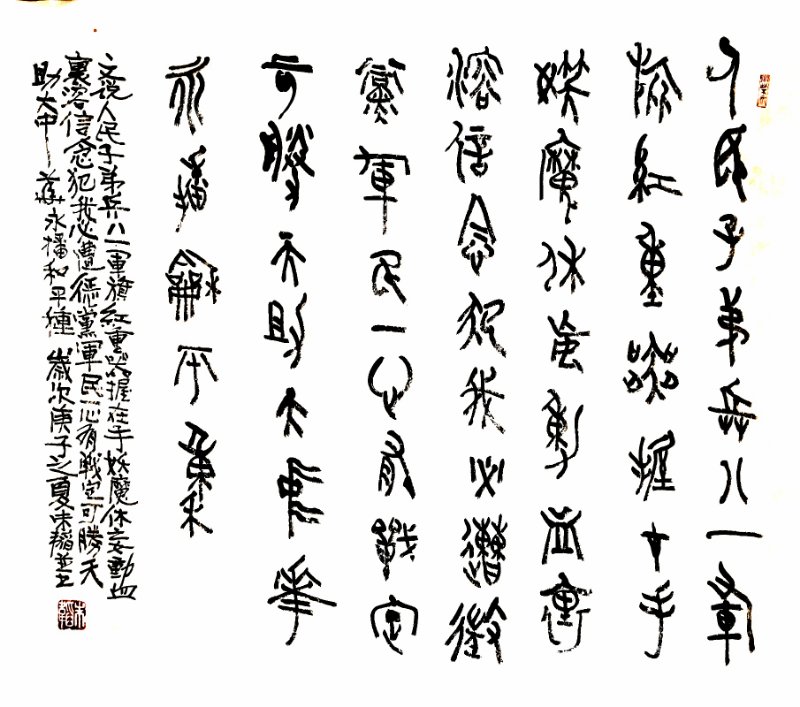 人民子弟兵八一軍
旗紅重器握在手
妖魔休妄動血裏
溶信念犯我必遭懲
黨軍民一心有戰定
可勝天助大中華
永播和平種
文說人民子弟兵八一軍旗紅重器握在手妖魔休妄動血
裏溶信念犯我必遭懲黨軍民一心有戰定可勝天
助大中華永播和平種 歲次庚子之夏